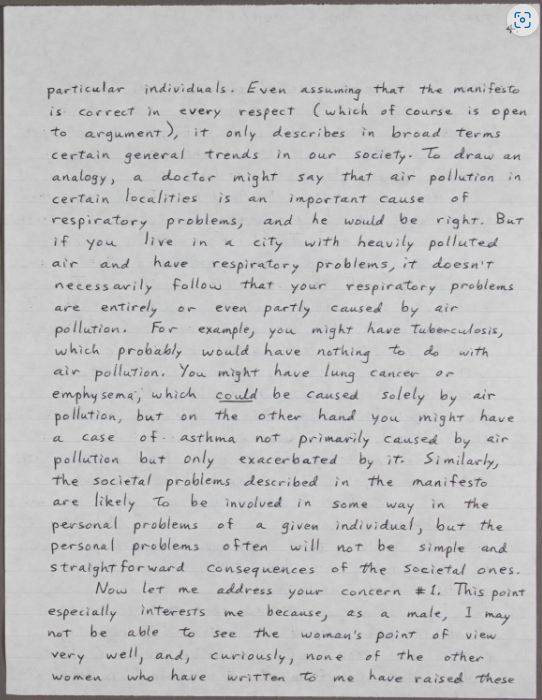 4.
particular individuals. Even assuming that the manifesto
is correct in every respect (which of course is open
to argument), it only describes in broad terms
certain general trends in our society. To draw an
analogy, a doctor might say that air pollution in
certain localities is an important cause of
respiratory problems, and he would be right. But
if you live in a city with heavily polluted
air and have respiratory problems, it doesn't
necessarily follow that your respiratory problems
are entirely or even partly caused by air
pollution. For example, you might have tuberculosis,
which probably would have nothing to do with
air pollution. You might have lung cancer or
emphysema, which could be caused solely by air
pollution, but on the other hand you might have
a case of asthma not primarily caused by air
pollution but only exacerbated by it. Similarly,
the societal problems described in the manifesto
are likely to be involved in some way in the
personal problems of a given individual, but the
personal problems often will not be simple and
straightforward consequences of the societal ones.
Now let me address your concern #1. This point
especially interests me because, as a male, I may
not be able to see the woman's point of view
very well, and, curiously, none of the other
women who have written to me have raised these